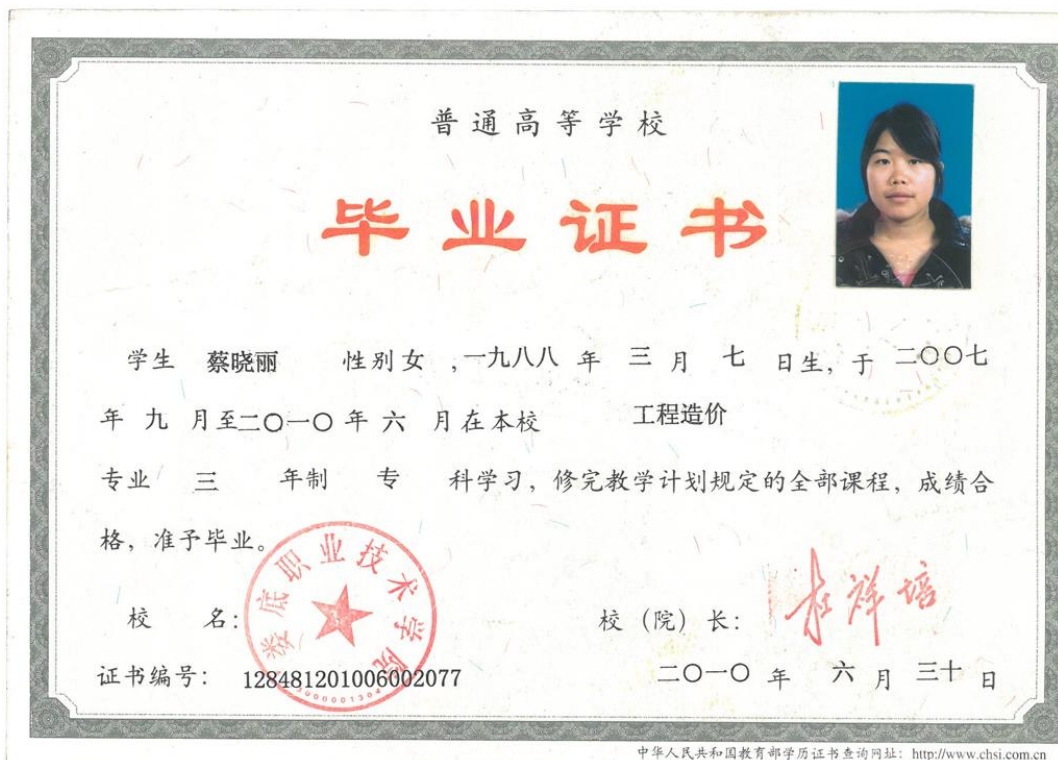 普通高等学校
毕业证书
学生 蔡晓丽 性别女 ,一九八八 年 三 月 七 日生, 于 二〇〇七
年 九 月至二〇一〇 年 六 月在本校 工程造价
专业 三 年制 专 科学习, 修完教学计划规定的全部课程, 成绩合
格, 准予毕业。
娄底职业技术学院
校 名: 校 (院) 长: 杜祥培
证书编号: 128481201006002077 二〇一〇 年 六 月 三十 日
中华人民共和国教育部学历证书查询网址: http://www.chsi.com.cn